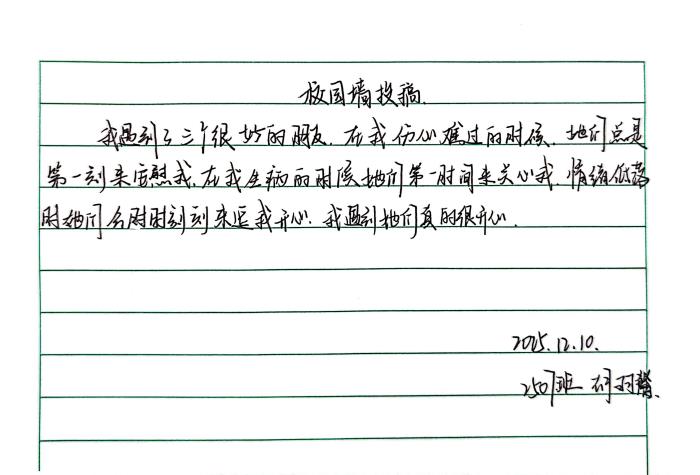 校园墙投稿.
我遇到了三个很好的朋友.在我伤心难过的时候.她们总是
第一刻来安慰我.在我生病的时候她们第一时间来关心我.情绪低落
时她们会时时刻刻来逗我开心.我遇到她们真的很开心.
2025.12.10.
2507班 何羽馨.